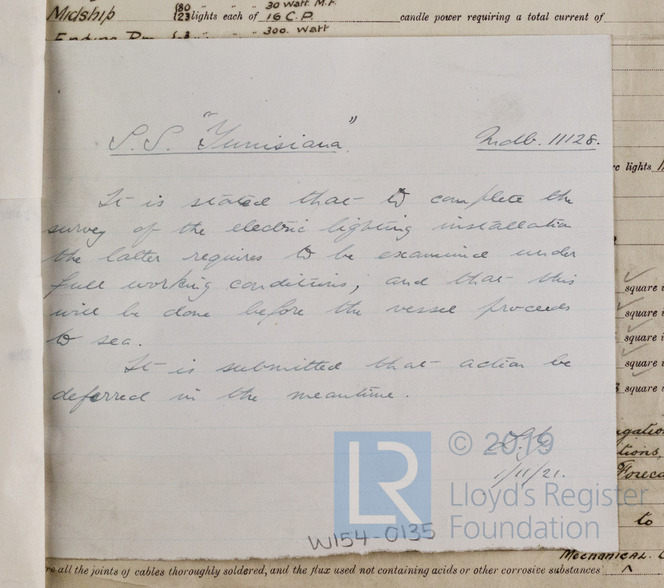 Midship {80 " " " 30 Watt M.F.
{23 lights each of 16 C.P. candle power requiring a total current of
300. Watt
S.S. "Tunisiana" Mdb. 11128.
It is stated that to complete the
survey of the electric lighting installation
the latter requires to be examined under
full working conditions, and that this
will be done before the vessel proceeds
to sea.
It is submitted that action be
deferred in the meantime.
1/11/21.
W154-0135
© 2019
LR
Lloyd's Register
Foundation
re lights 11
square i
square i
square i
square i
square i
to
Mechanical.
re all the joints of cables thoroughly soldered, and the flux used not containing acids or other corrosive substances